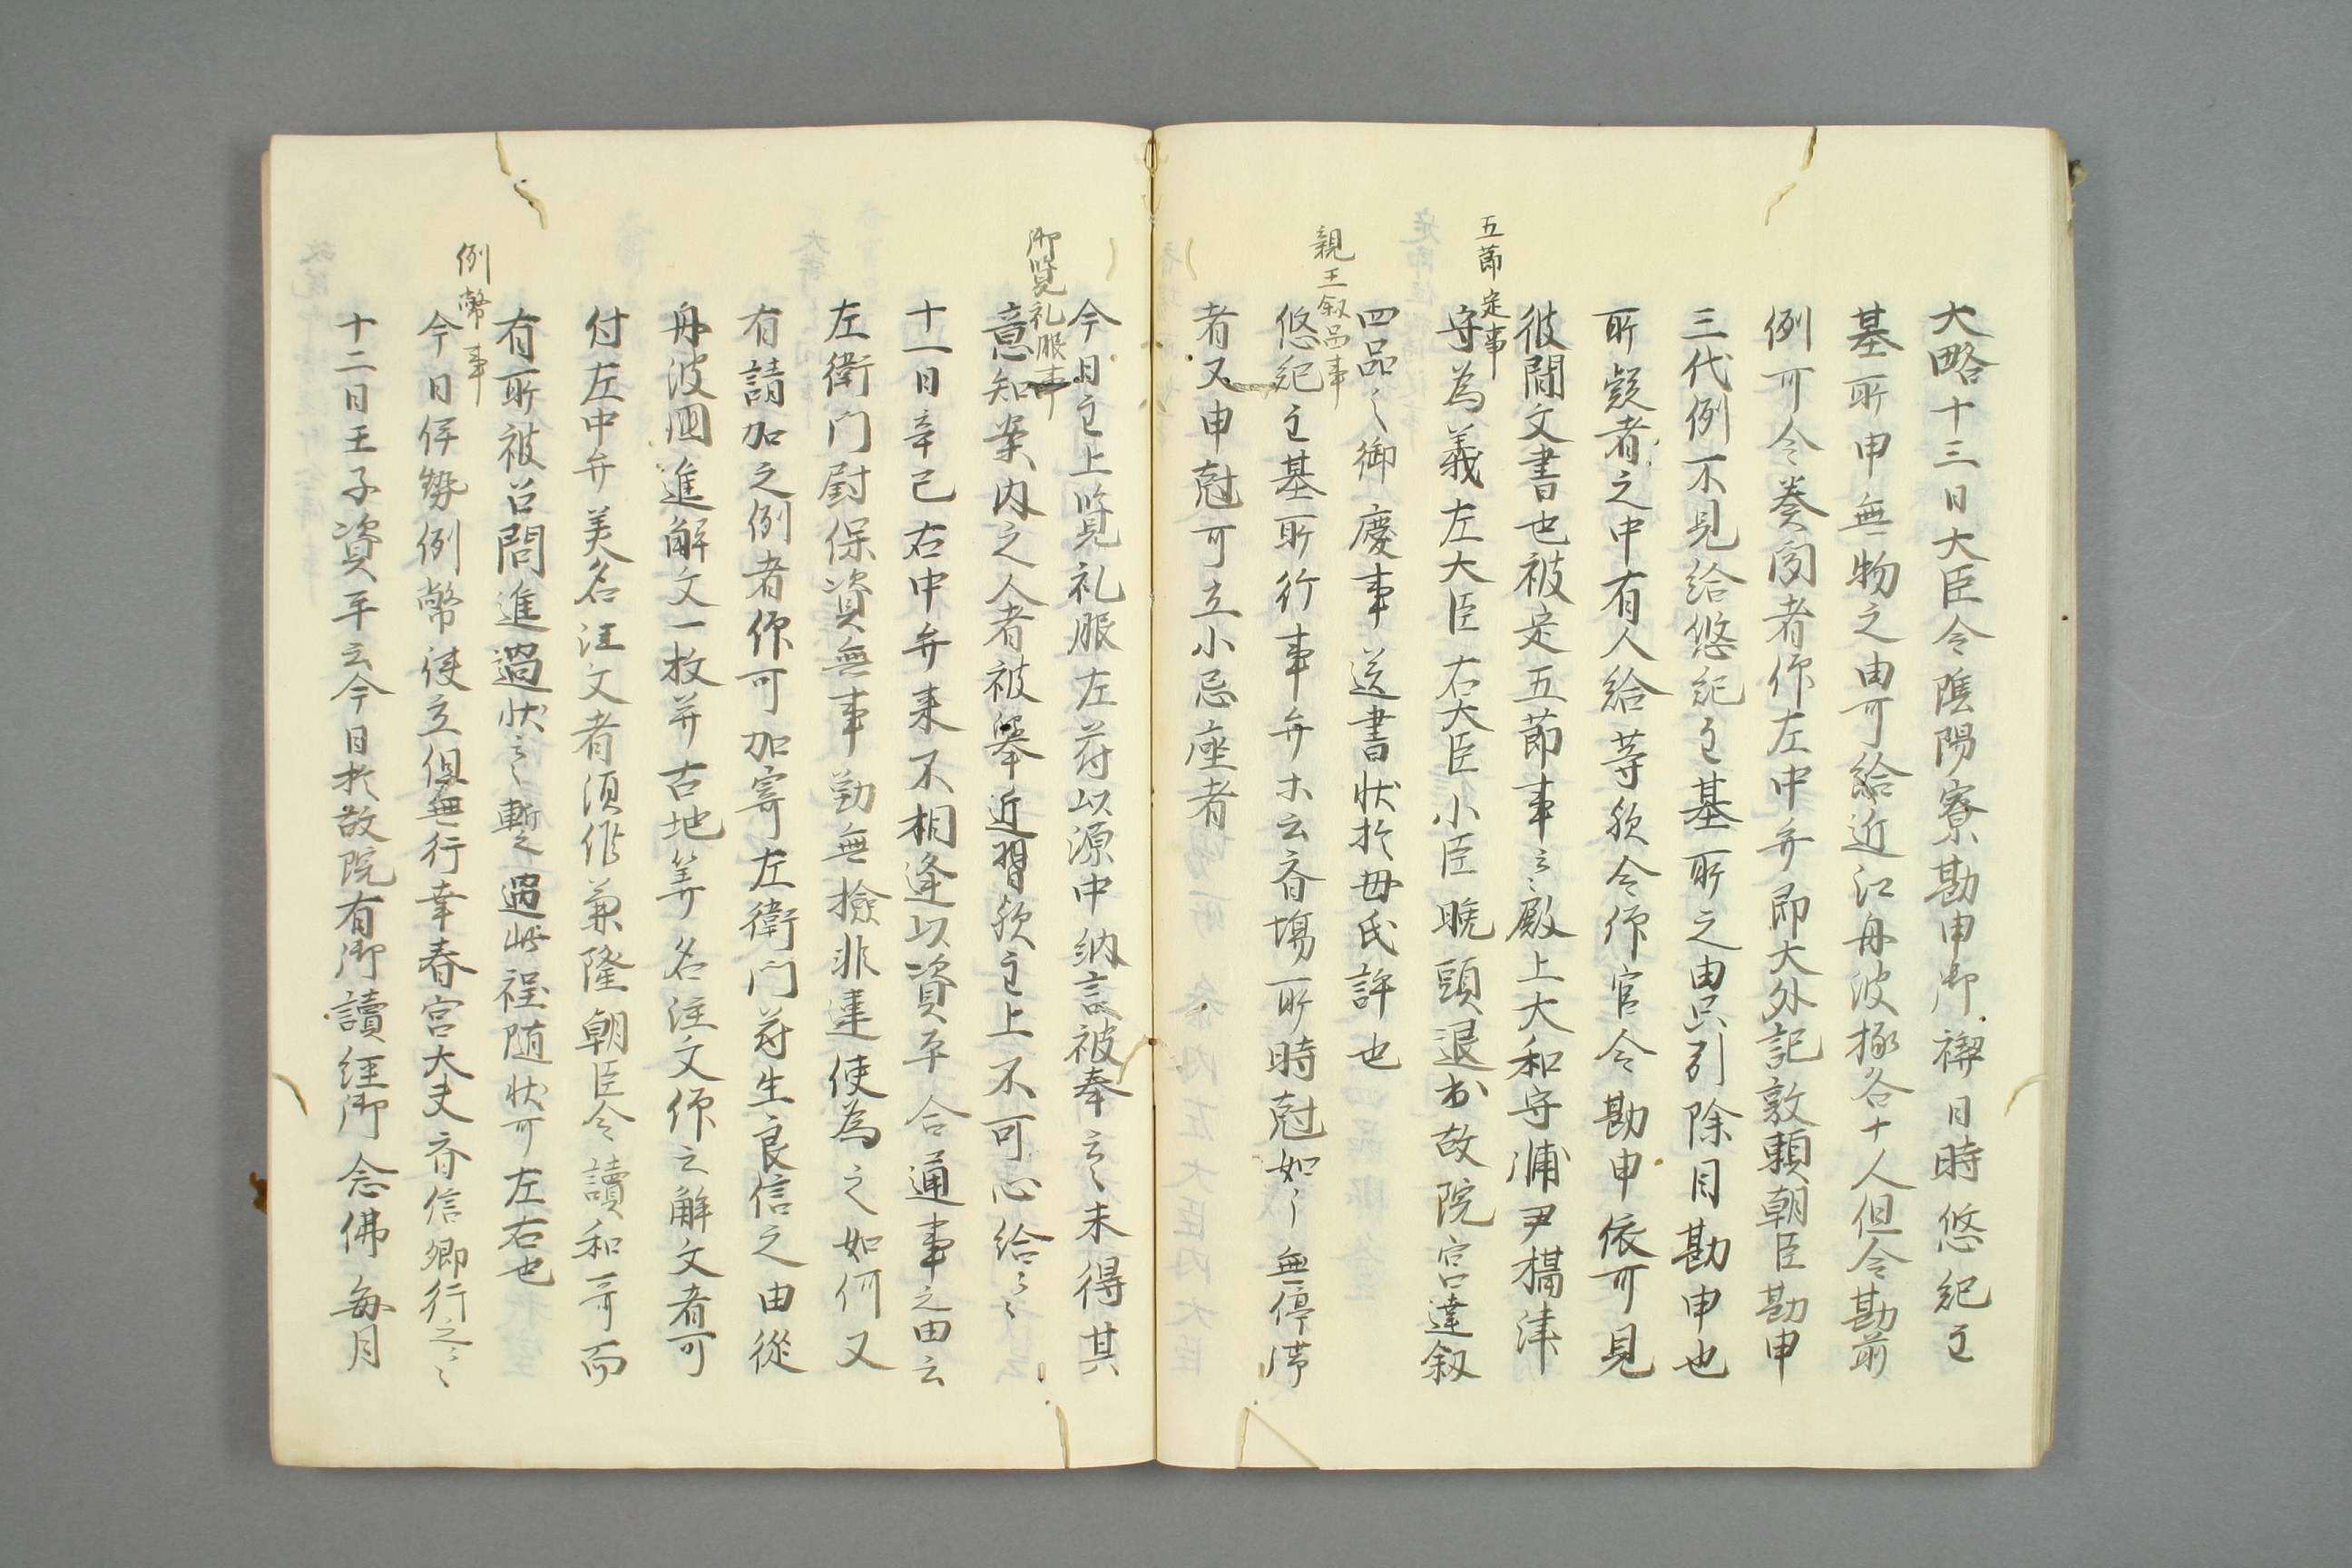 大略十三日大臣令陰陽寮勘申御禊日時悠紀主
基所申無物之由可給近江丹波掾各十人但令勘前
例可令奏聞者仰左中弁即大外記敦頼朝臣勘申
三代例不見給悠紀主基所之由只引除目勘申也
所疑者之中有人給等欤令仰官令勘申依可見
彼間文書也被定五節事云々殿上大和守浦尹攝津
五節定事
守為義左大臣右大臣小臣晩頭退出故院宮達叙
四品之御慶事送書状於母氏許也
親王叙品事
悠紀主基所行事弁等云斎場所時尅如々無停滞
者又申尅可立小忌座者
今日主上覧礼服左府以源中納言被奉云々未得其
御覧礼服事
意知案内之人者被擧近習欤主上不可心給云々
十一日辛已右中弁来不相逢以資平令通事之由云
左衛門尉保資無事勤無檢非違使為之如何又
有請加之例者仰可加寄左衛門府生良信之由從
丹波國進解文一枚并古地等名注文仰之解文者可
付左中弁美名注文者須作兼隆朝臣令讀和哥而
有所被召問進過状云々暫之過此程随状可左右也
例幣事
今日伊勢例幣使立但無行幸春宮大夫斉信卿行之云々
十二日壬子資平云今日於故院有御讀経御念佛毎月